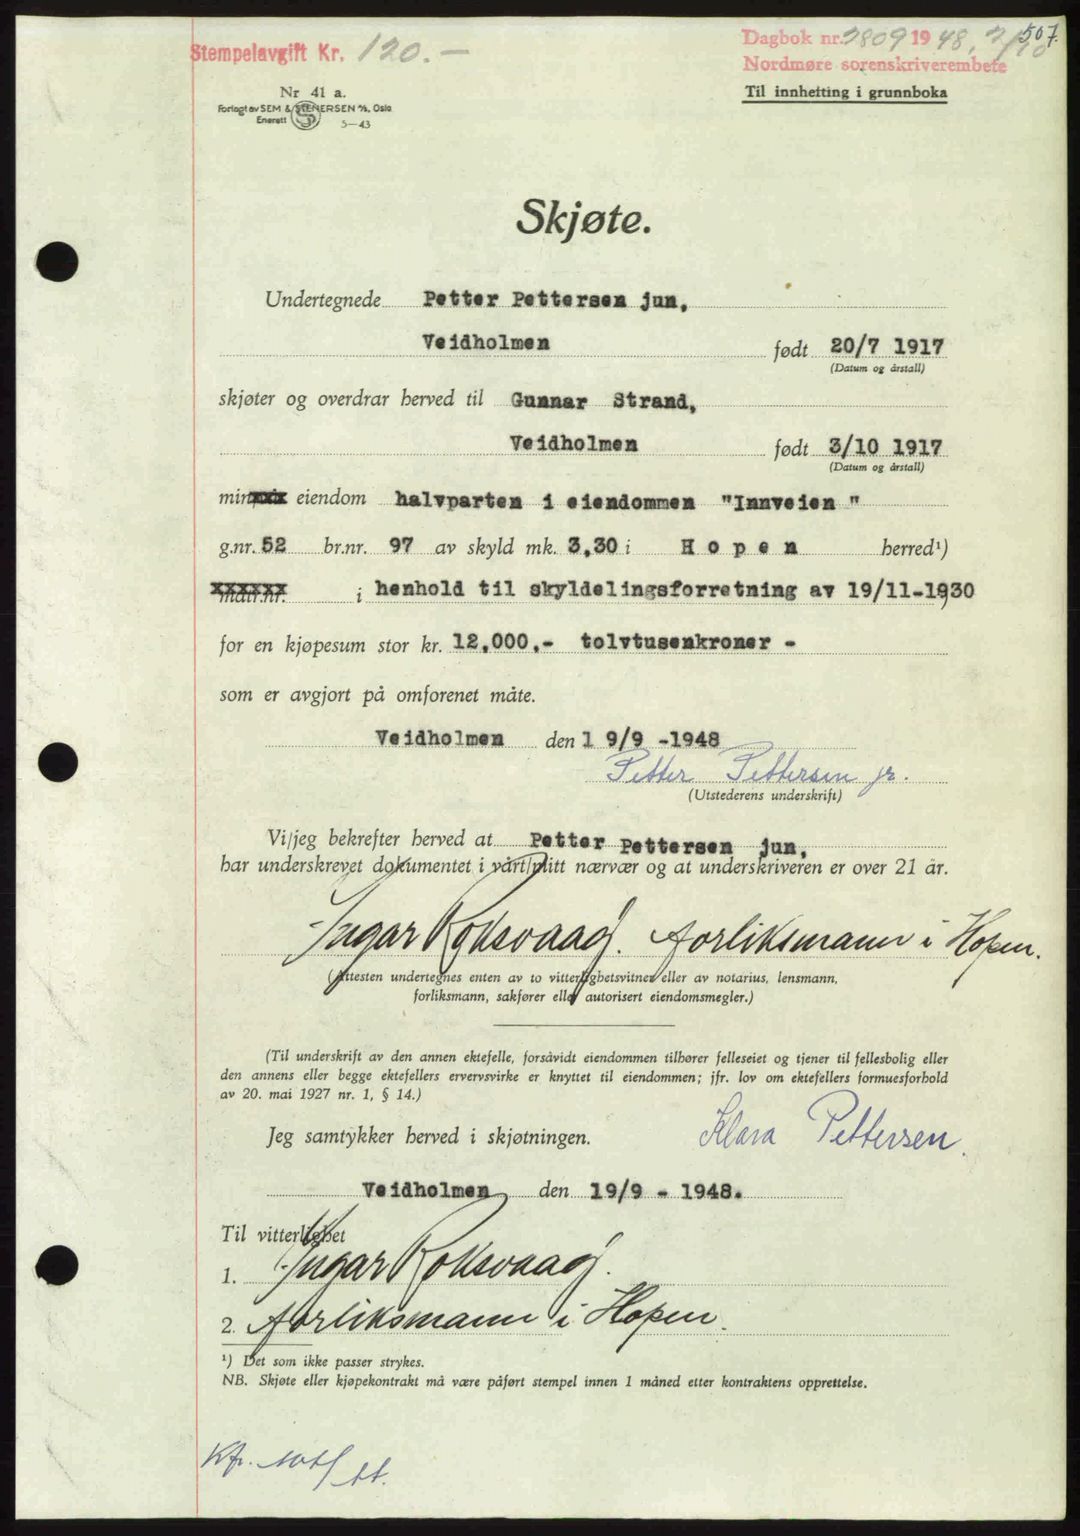 507.
Stempelavgift Kr. 120.-
Dagbok nr. 2809 1948, 2/10
Nordmøre sorenskriverembete
Til innhefting i grunnboka
Nr 41 a.
Forlagt av SEM & STENERSEN A/S, Oslo
Enerett 5-43
Skjøte.
Undertegnede Petter Pettersen jun,
Veidholmen født 20/7 1917
(Datum og årstall)
skjøter og overdrar herved til Gunnar Strand,
Veidholmen født 3/10 1917
(Datum og årstall)
min eiendom halvparten i eiendommen "Innveien "
g.nr. 52 br.nr. 97 av skyld mk. 3,30 i Hopen herred¹)
matr.nr. i henhold til skyldelingsforretning av 19/11-1930
for en kjøpesum stor kr. 12,000,- tolvtusenkroner -
som er avgjort på omforenet måte.
Veidholmen den 1 9/9 -1948
Petter Pettersen jr.
(Utstederens underskrift)
Vi/jeg bekrefter herved at Petter Pettersen jun,
har underskrevet dokumentet i vårt/mitt nærvær og at underskriveren er over 21 år.
Ingar Roksvaag. forliksmann i Hopen.
(Attesten undertegnes enten av to vitterlighetsvitner eller av notarius, lensmann,
forliksmann, sakfører eller autorisert eiendomsmegler.)
(Til underskrift av den annen ektefelle, forsåvidt eiendommen tilhører felleseiet og tjener til fellesbolig eller
den annens eller begge ektefellers ervervsvirke er knyttet til eiendommen; jfr. lov om ektefellers formuesforhold
av 20. mai 1927 nr. 1, § 14.)
Jeg samtykker herved i skjøtningen. Klara Pettersen.
Veidholmen den 19/9 - 1948.
Til vitterlighet
1. Ingar Roksvaag.
2. forliksmann i Hopen.
¹) Det som ikke passer strykes.
NB. Skjøte eller kjøpekontrakt må være påført stempel innen 1 måned etter kontraktens opprettelse.